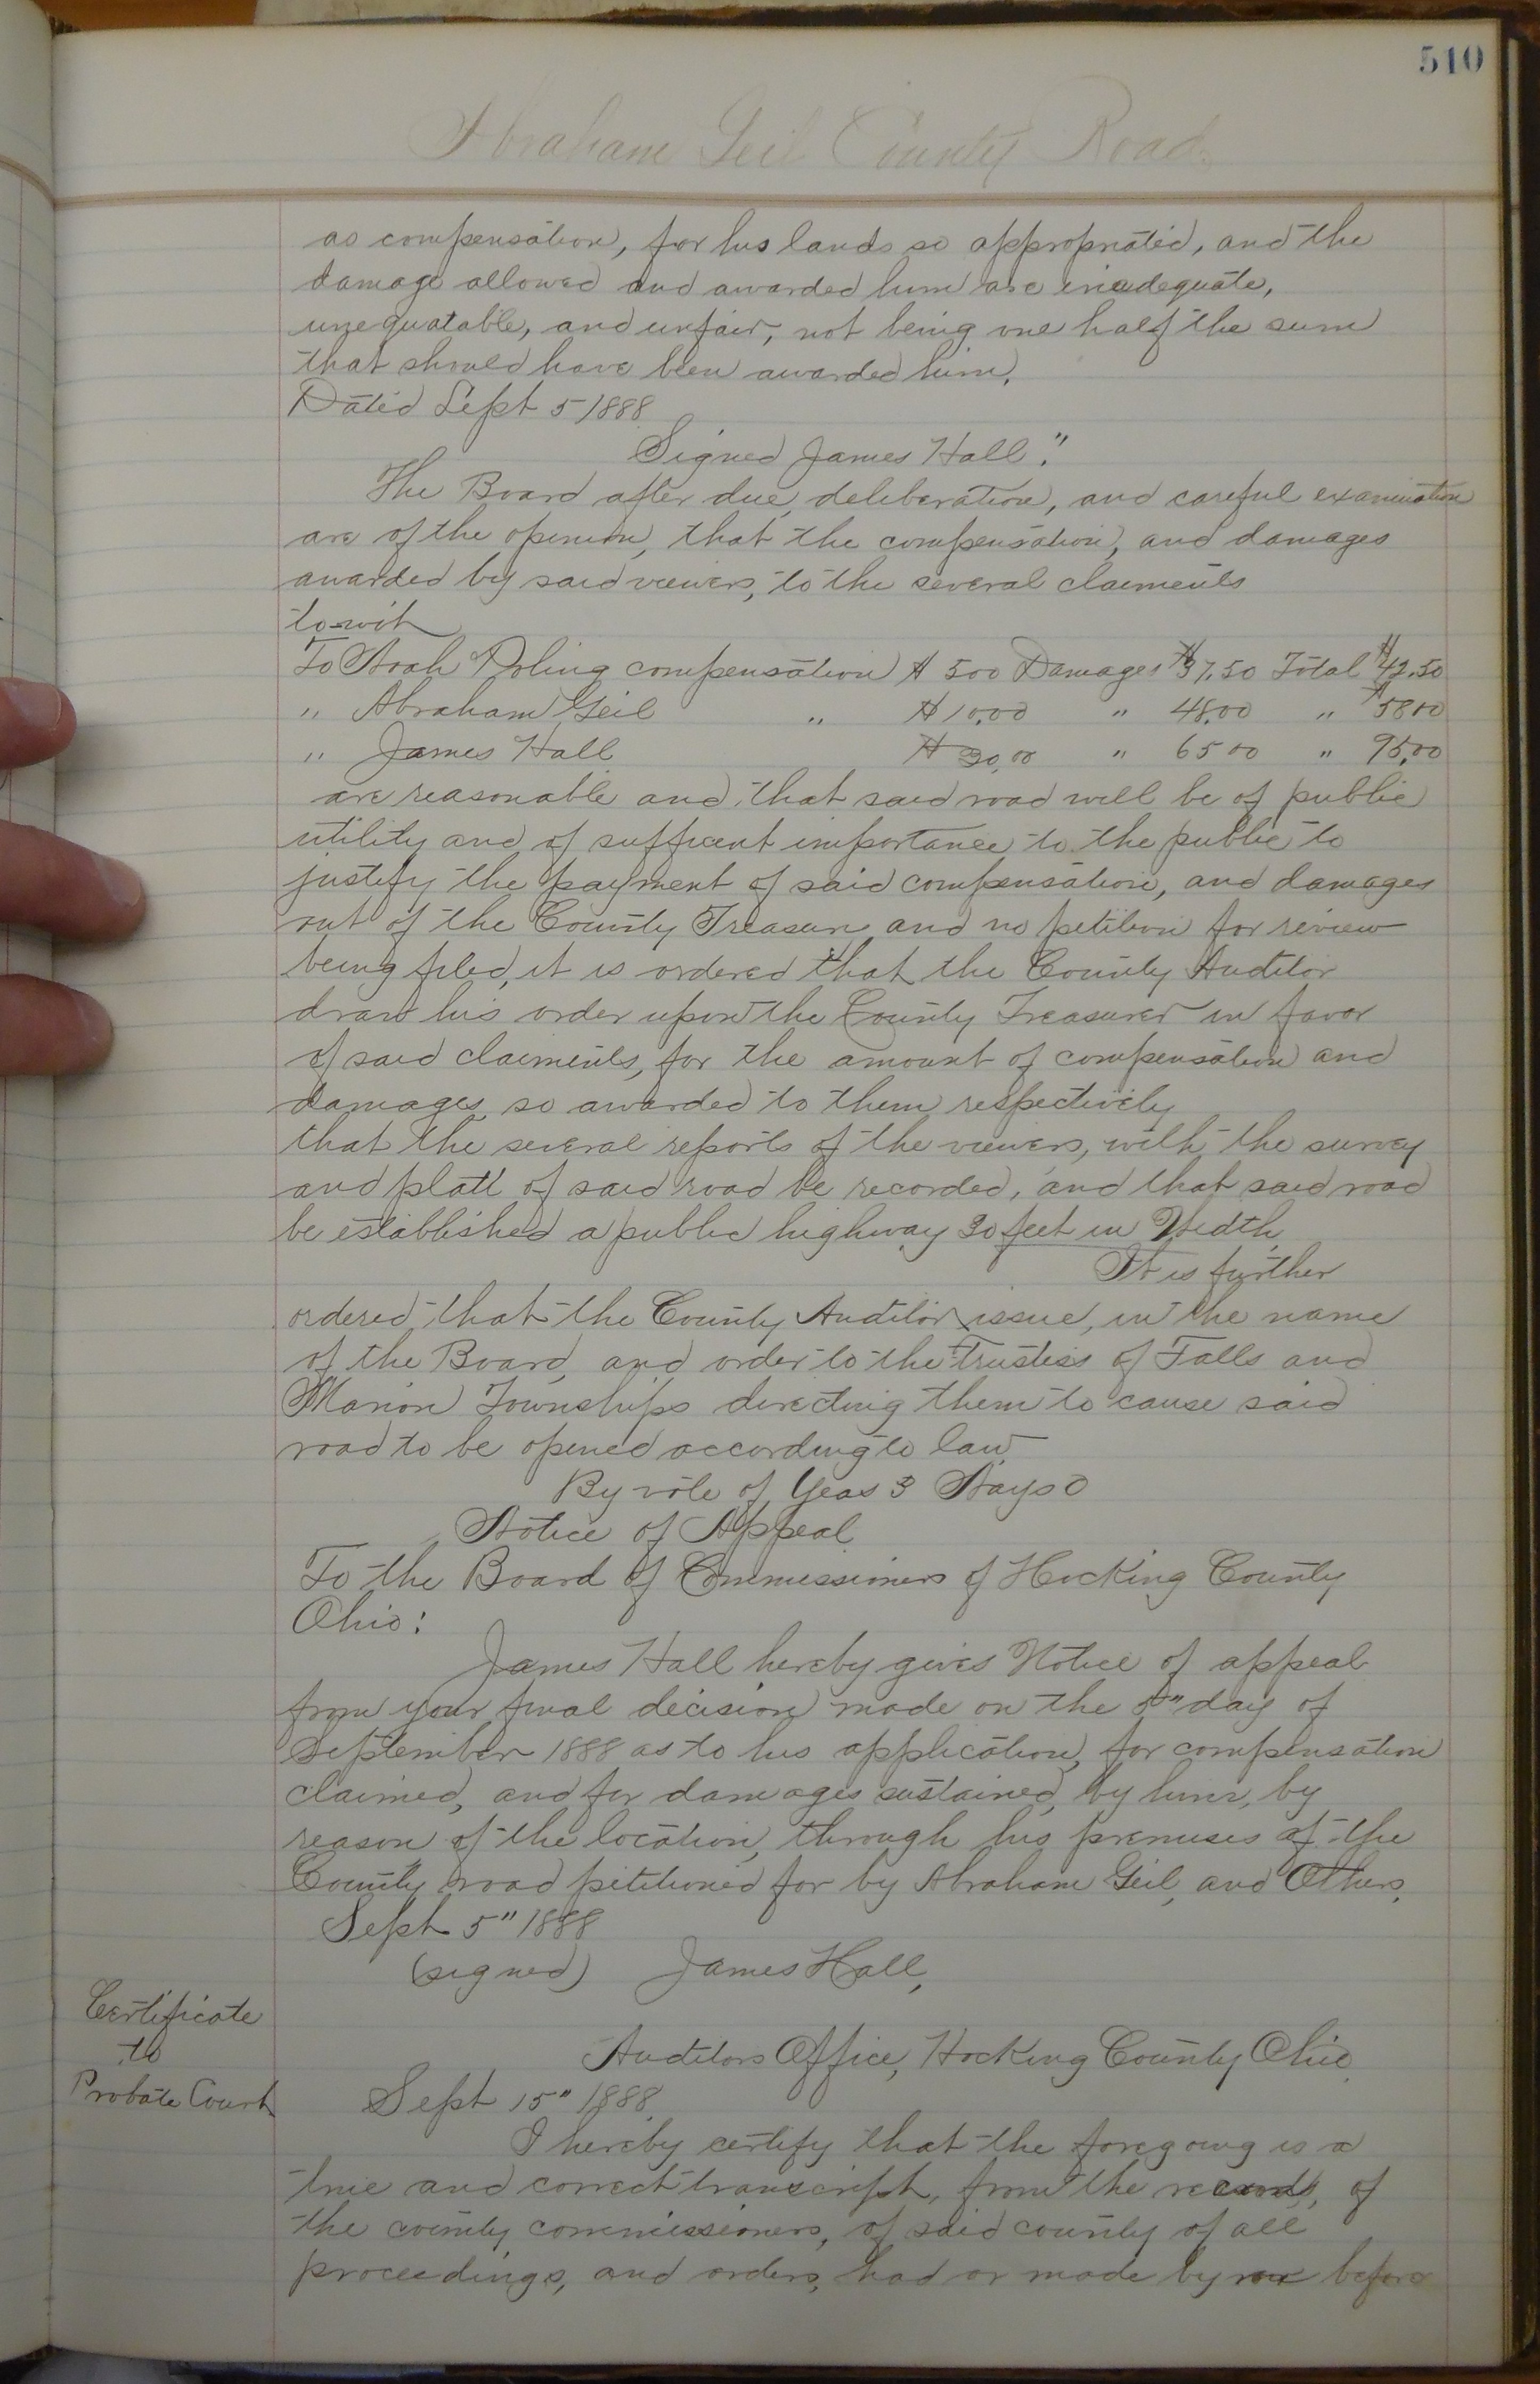 510
Abraham Geil County Road
as compensation, for his lands so appropriated, and the
damage allowed and awarded him are inadequate,
unequatable, and unfair, not being one half the sum
that should have been awarded him.
Dated Sept 5 1888
Signed James Hall."
The Board after due deliberation, and careful examination
are of the openion, that the compensation, and damages
awarded by said viewers, to the several claiments
to-wit
To Noah Poling compensation $ 500 Damages $37.50 Total $42.50
" Abraham Geil " $10.00 " 48.00 " $5800
" James Hall $30.00 " 6500 " 95.00
are reasonable and that said road will be of public
utility and of sufficent importance to the public to
justify the payment of said compensation, and damages
out of the County Treasury and no petition for review
being filed, it is ordered that the County Auditor
draw his order upon the County Treasurer in favor
of said claiments, for the amount of compensation and
damages so awarded to them respectively
that the several reports of the viewers, with the survey
and platt of said road be recorded, and that said road
be established a public highway 30 feet in Width
It is further
ordered that the County Auditor issue, in the name
of the Board, and order to the Trustees of Falls and
Marion Townships directing them to cause said
road to be opened according to law
By vote of Yeas 3 Nays 0
Notice of Appeal
To the Board of Commissioners of Hocking County
Ohio:
James Hall hereby gives Notice of appeal
from your final decision made on the 5" day of
September 1888 as to his application, for compensation
claimed, and for damages sustained, by him, by
reason of the location, through his premises of the
County road petitioned for by Abraham Geil, and Others,
Sept 5" 1888
(signed) James Hall,
Certificate
to
Probate Court
Auditors Office, Hocking County Ohio
Sept 15" 1888
I hereby certify that the foregoing is a
true and correct transcript, from the records, of
the county commissioners, of said county of all
proceedings, and orders, had or made by or before